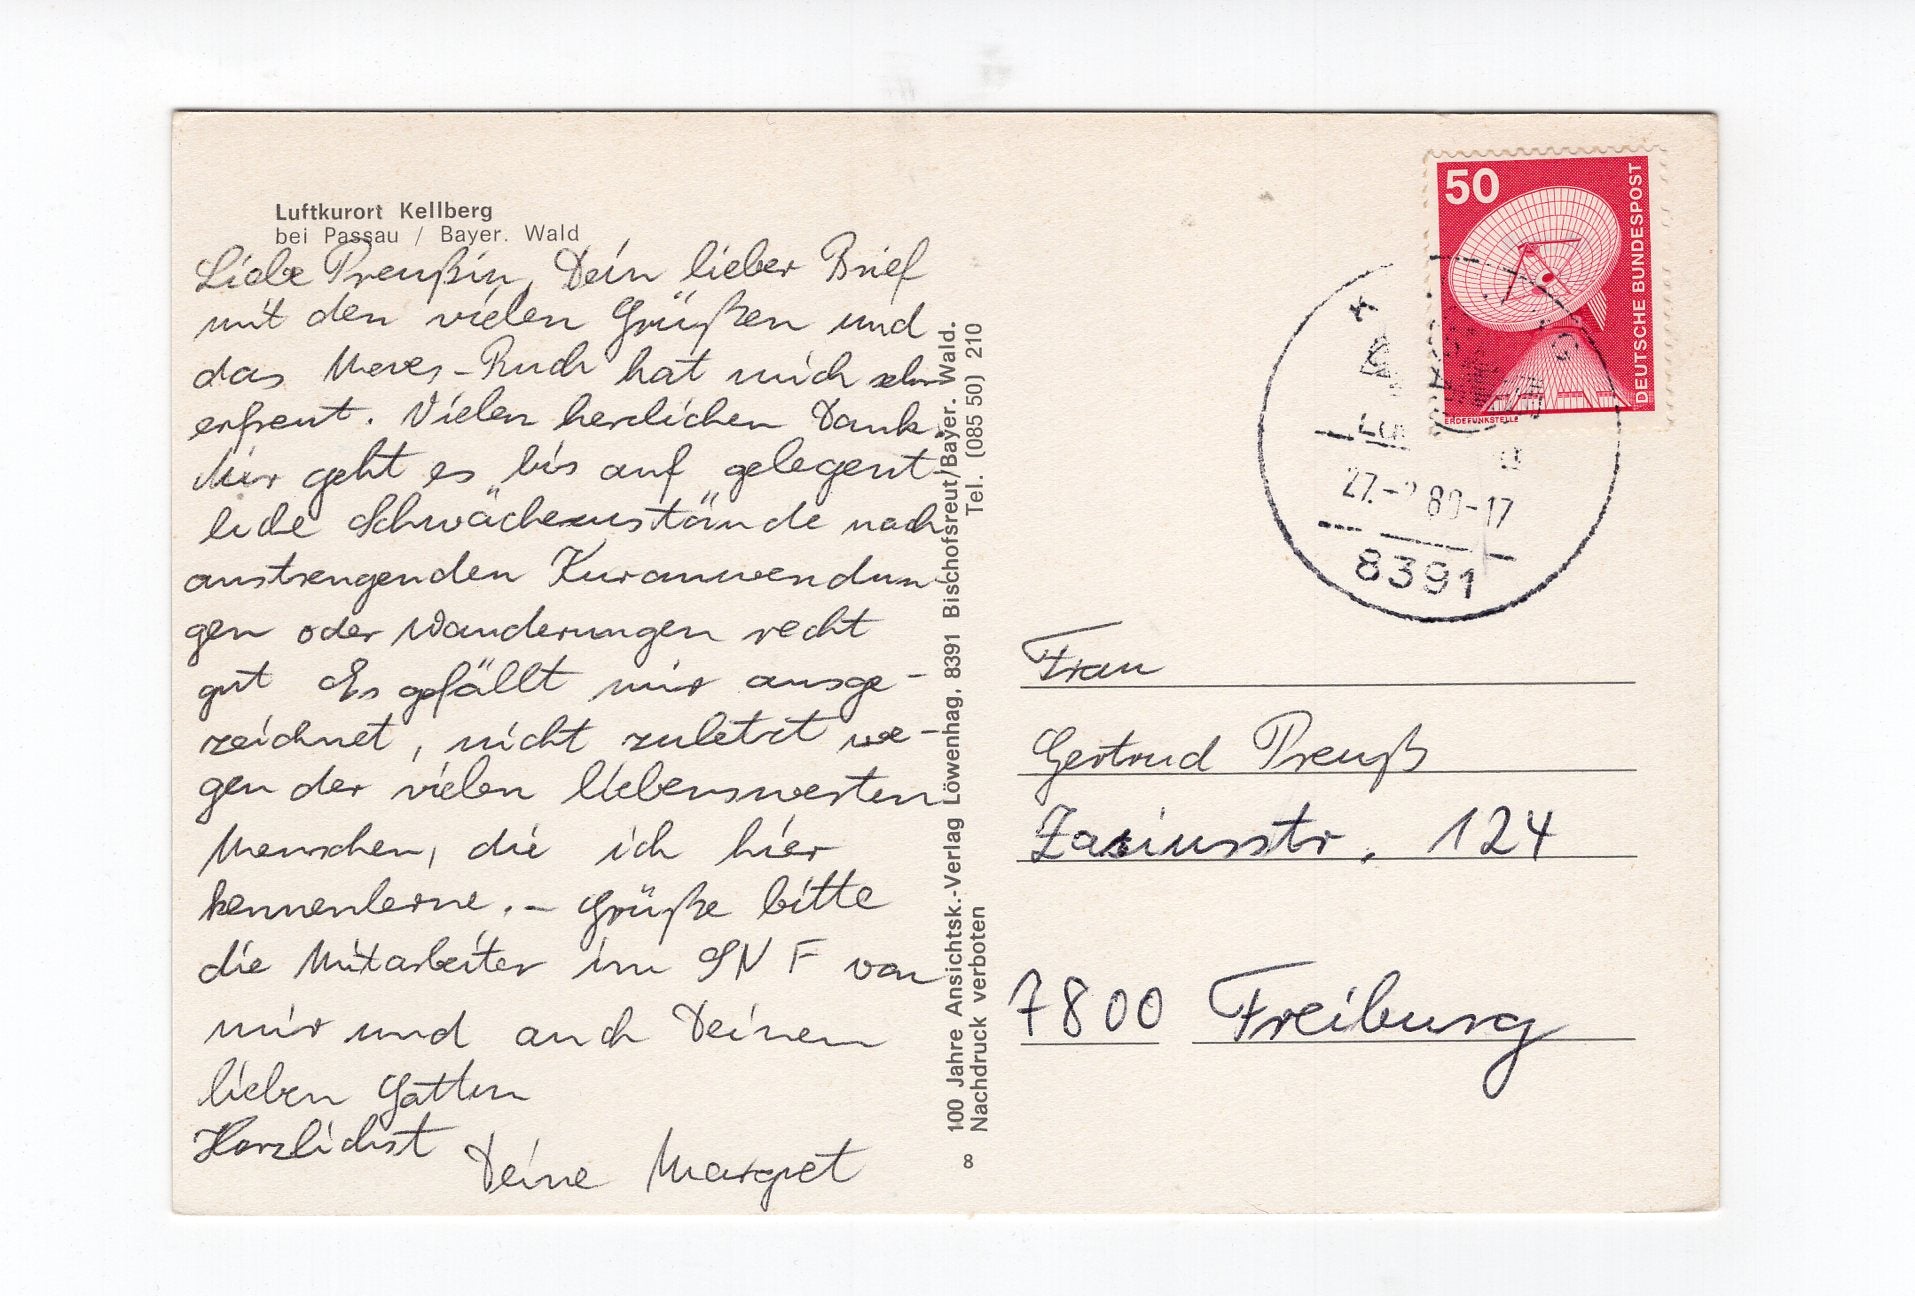 Luftkurort Kellberg
bei Passau / Bayer. Wald
Liebe Preußin, Dein lieber Brief
mit den vielen Grüßen und
das Meves-Buch hat mich sehr
erfreut. Vielen herzlichen Dank.
Mir geht es bis auf gelegent-
liche Schwächezustände nach
anstrengenden Kuranwendun-
gen oder Wanderungen recht
gut Es gefällt mir ausge-
zeichnet, nicht zuletzt we-
gen der vielen liebenswerten
Menschen, die ich hier
kennenlerne. – Grüße bitte
die Mitarbeiter im SNF von
mir und auch Deinen
lieben Gatten
Herzlichst
Deine Margret
100 Jahre Ansichtsk.-Verlag Löwenhag, 8391 Bischofsreut/Bayer. Wald.
Nachdruck verboten Tel. (085 50) 210
8
50
DEUTSCHE BUNDESPOST
ERDEFUNKSTELLE
27.- 80-17
8391
Frau
Gertrud Preuß
Zasiusstr. 124
7800 Freiburg